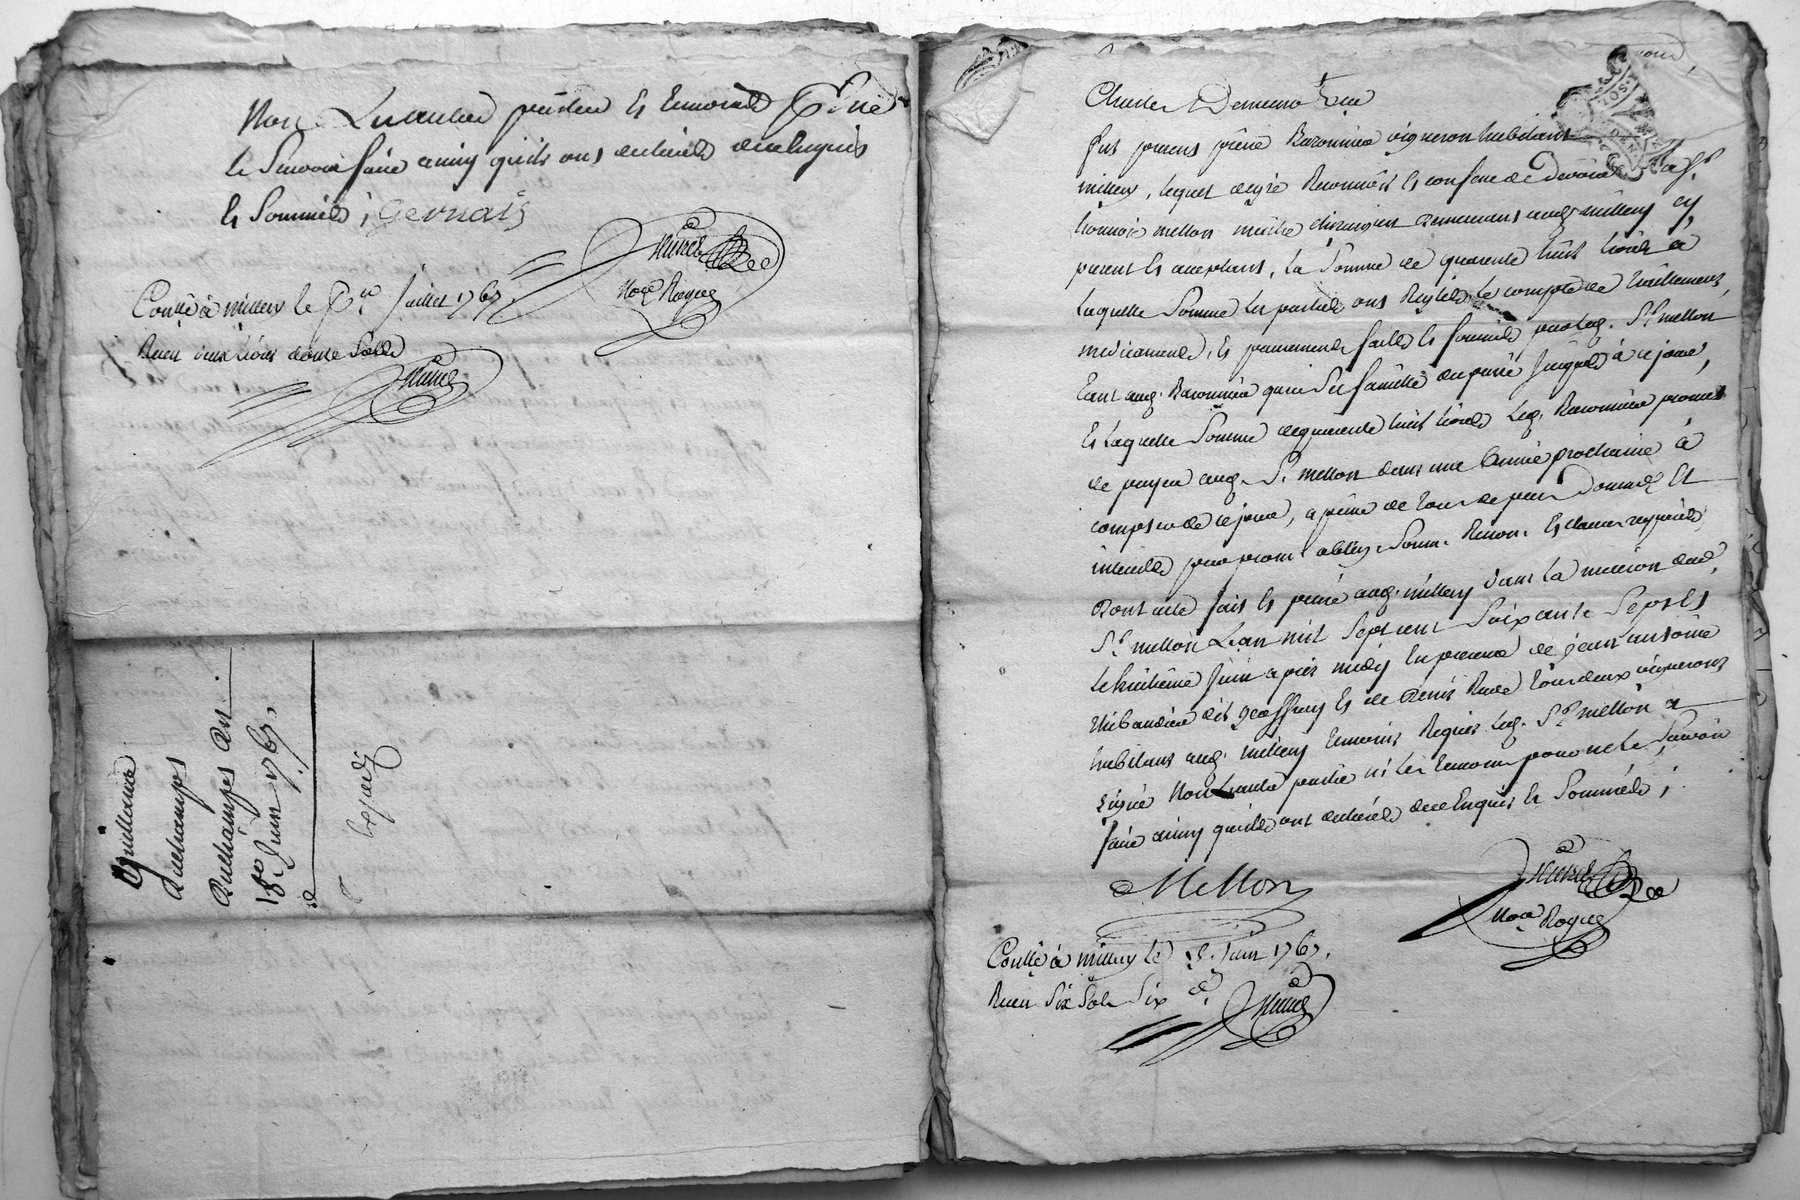 Non Lautre partie Et temoins
le Scavoir faire ainsy quils ont declarés enquis
Et Sommés; gervais
Nore Royal
Conllé à millery le Juillet 1767.
Receu deux livres douze Sols
guillaume
duchamps
Duchamps
18e Juin 1767.
Expedz
Fut present pierre Baronnier vigneron habitant
millery, lequel degré Reconnoit Et confesse Devoir a Sr.
mellon maitre chirurgien demeurant aud. millery cy
present Et acceptant, La Somme de quarante huit livres a
laquelle Somme les parties ont Reglés le compte de traittements,
medicaments, Et pansements faits Et fournis par led. Sr. mellon
tant aud. Baronnier qu'a Sa famille du passé Jusques à ce jour,
Et Laquelle Somme de quarante huit livres led. Baronnier promet
de payer aud. Sr. mellon dans une Année prochaine à
compter de ce jour, a peine de tous depens Domages Et
interests par prom. oblig. Soum. Renon. Et clauses requises
Dont acte fait Et passé aud. millery dans La maison dud.
Sr. mellon L'an mil Sept cent Soixante Sept Et
le huitième Juin après midy En presence de jean antoine
thibaudier dit geoffray Et de Denis Rude tous deux vignerons
habitans aud. millery temoins Requis led. Sr. mellon a
signé Non Lautre partie ni les temoins pour ne le Scavoir
faire ainsy quils ont declarés de ce Enquis Et Sommés;
Mellon
Nore Royal
Conllé à millery le Juin 1767.
Receu Six Sols Six d.